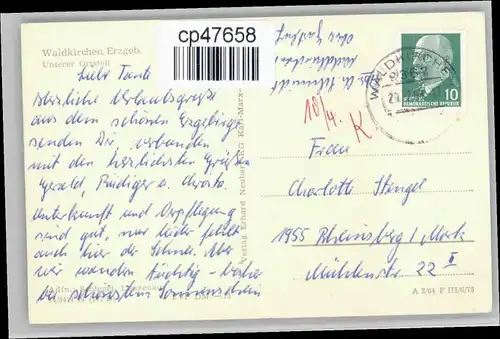 cp47658
Waldkirchen, Erzgeb.
Unterer Ortsteil
Liebe Tante
herzliche Urlaubsgrüße
aus dem schönen Erzgebirge
senden Dir, verbunden
mit den herzlichsten Grüßen
Gerald, Rüdiger u.
Unterkunft und Verpflegung
sind gut, nur leider fehlt
auch hier der Schnee. Aber
wir wandern tüchtig – bisher
bei schönstem Sonnenschein
Verlag Erhard Neubert KG Karl-Marx-
WALDKIRCHEN
10
DEUTSCHE DEMOKRATISCHE REPUBLIK
18/4. K
Frau
Charlotte Stengel
1955 Rheinsberg / Mark
Mühlenstr. 22 II
A 2/64 F III/6/75